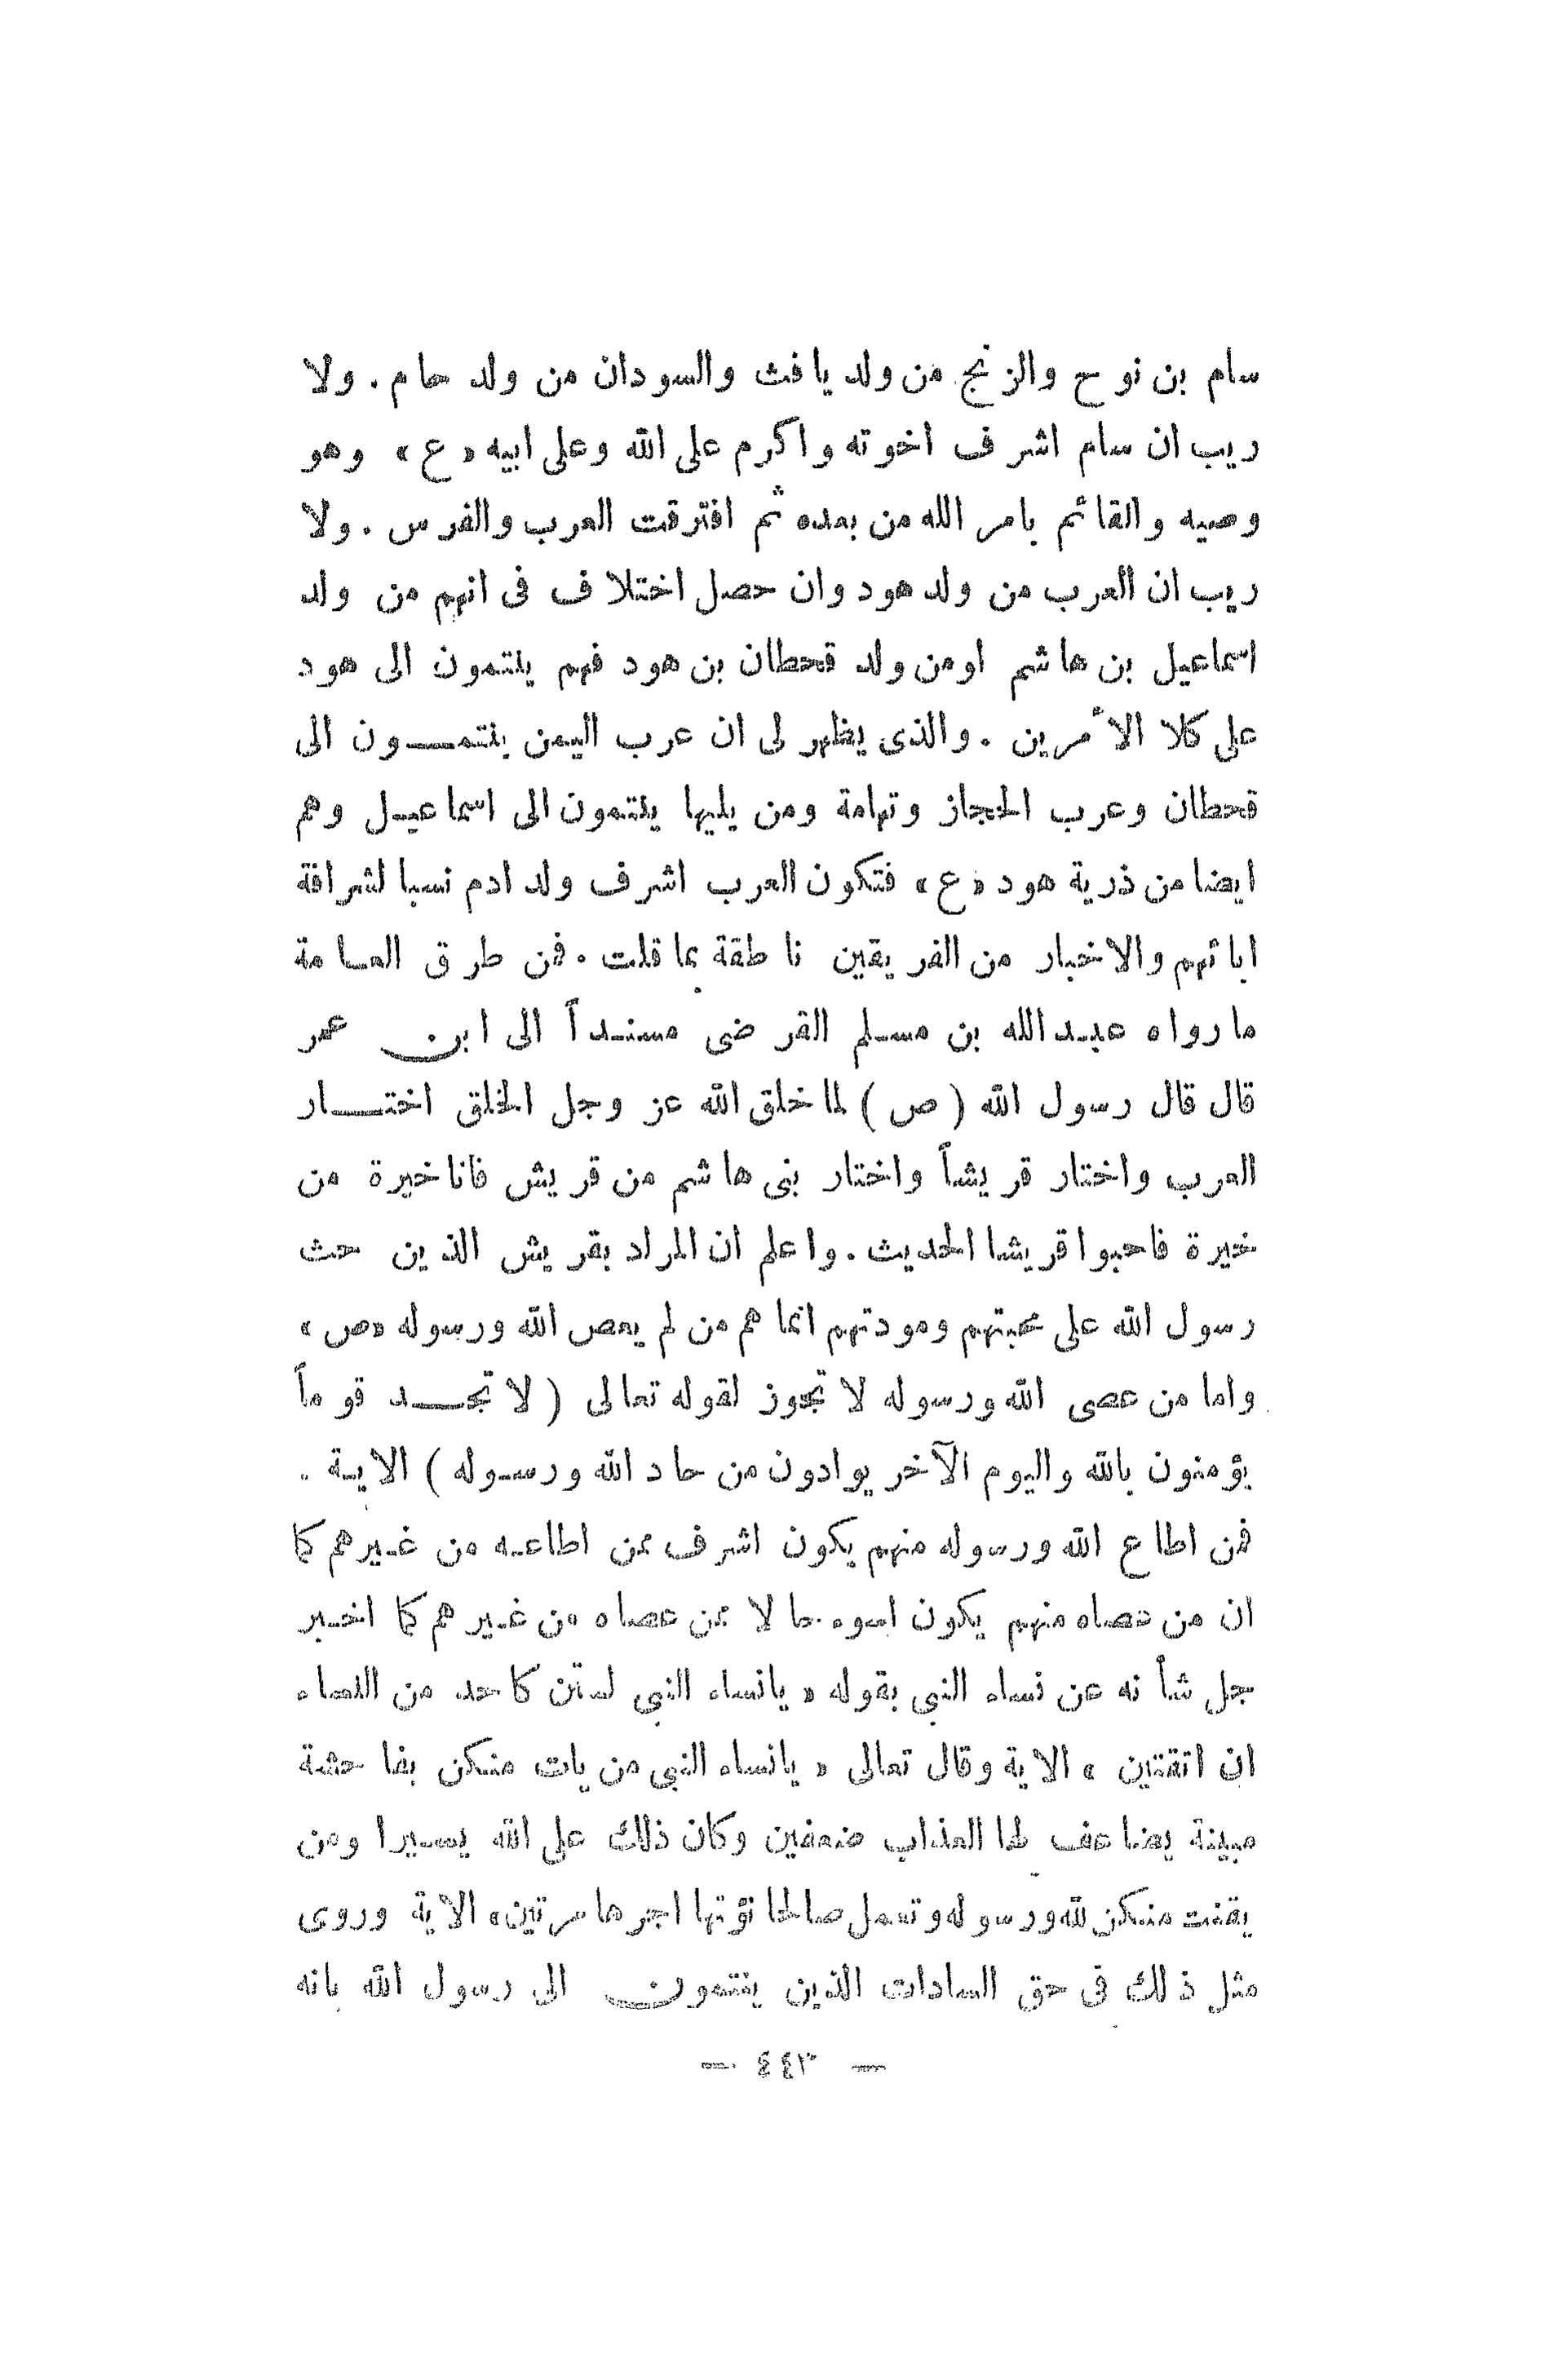 سام بن نوح والزنج من ولد يافث والسودان من ولد حام . ولا
ريب ان سام اشرف اخوته واكرم على الله وعلى ابيه «ع» وهو
وصيه والقائم بامر الله من بعده ثم افترقت العرب والفرس . ولا
ريب ان العرب من ولد هود وان حصل اختلاف فى انهم من ولد
اسماعيل بن هاشم اومن ولد قحطان بن هود فهم ينتمون الى هود
على كلا الأمرين . والذى يظهر لى ان عرب اليمن ينتمــون الى
قحطان وعرب الحجاز وتهامة ومن يليها ينتمون الى اسماعيـل وهم
ايضا من ذرية هود «ع» فتكون العرب اشرف ولد ادم نسبا لشرافة
ابائهم والاخبار من الفريقين ناطقة بما قلت . فمن طرق العـامة
مارواه عبـد الله بن مسـلم القرضى مسنـداً الى ابن عمر
قال قال رسول الله ( ص ) لما خلق الله عز وجل الخلق اختــار
العرب واختار قريشاً واختار بنى هاشم من قريش فانا خيرة من
خيرة فاحبوا قريشا الحديث . واعلم ان المراد بقريش الذين حث
رسول الله على محبتهم ومودتهم انما هم من لم يعص الله ورسوله «ص»
واما من عصى الله ورسوله لا تجوز لقوله تعالى ( لا تجــد قوماً
يؤمنون بالله واليوم الآخر يوادون من حاد الله ورسـوله ) الايـة .
فمن اطاع الله ورسوله منهم يكون اشرف ممن اطاعـه من غـيرهم كما
ان من عصاه منهم يكون اسوء حالا ممن عصاه من غـيرهم كما اخـبر
جل شأنه عن نساء النبى بقوله « يانساء النبى لستن كاحد من النساء
ان اتقتين » الاية وقال تعالى « يانساء النبى من يات منكن بفاحشة
مبينة يضاعف لها العذاب ضعفين وكان ذلك على الله يسـيرا ومن
يقنت منكن لله ورسوله وتعمل صالحا نؤتها اجرها مرتين» الاية وروى
مثل ذلك فى حق السادات الذين ينتمون الى رسول الله بانه
— ٤٤٣ —